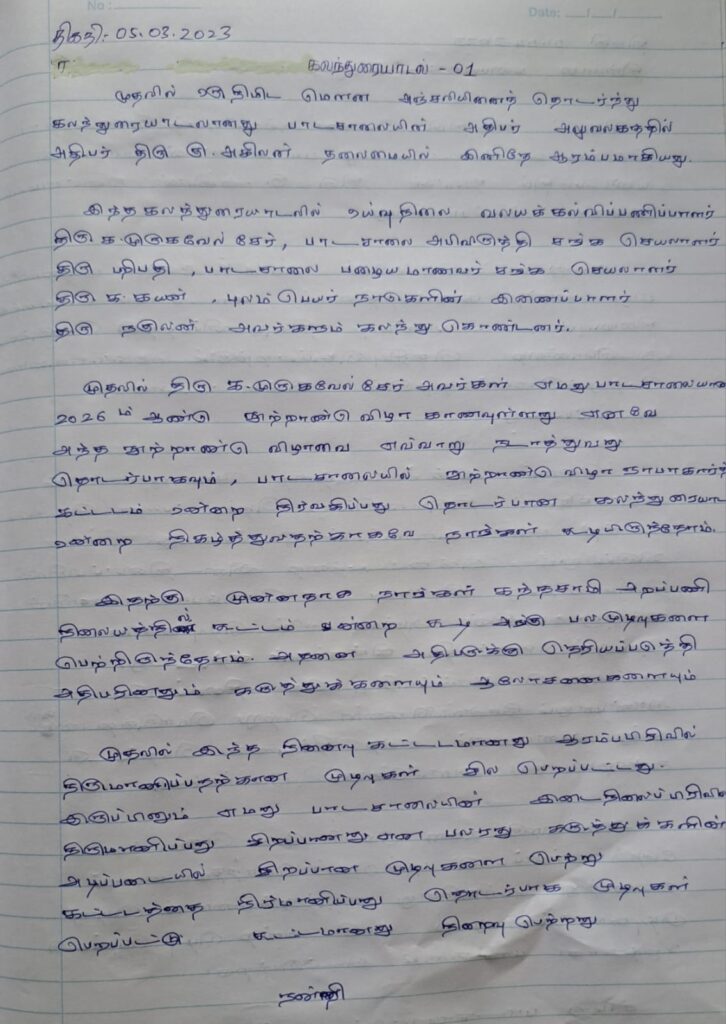 No :
Date: __/__/__
திகதி:- 05.03.2023
கலந்துரையாடல் - 01
முதலில் ஒரு நிமிட மௌன அஞ்சலியினைத் தொடர்ந்து
கலந்துரையாடலானது பாடசாலையின் அதிபர் அலுவலகத்தில்
அதிபர் திரு கு.அகிலன் தலைமையில் இனிதே ஆரம்பமாகியது.
இந்த கலந்துரையாடலில் ஓய்வுநிலை வலயக்கல்விப்பணிப்பாளர்
திரு க.முருகவேல் சேர், பாடசாலை அபிவிருத்தி சங்க செயலாளர்
திரு பூபதி, பாடசாலை பழைய மாணவர் சங்க செயலாளர்
திரு க.கயன் , புலம்பெயர் நாடுகளின் இணைப்பாளர்
திரு நகுலன் அவர்களும் கலந்து கொண்டனர்.
முதலில் திரு க.முருகவேல் சேர் அவர்கள் எமது பாடசாலையான
2026 ம் ஆண்டு நூற்றாண்டு விழா காணவுள்ளது எனவே
அந்த நூற்றாண்டு விழாவை எவ்வாறு நடாத்துவது
தொடர்பாகவும், பாடசாலையில் நூற்றாண்டு விழா
கட்டடம் ஒன்றை நிர்வகிப்பது தொடர்பான கலந்துரையா
ஒன்றை நிகழ்த்துவதற்காகவே நாங்கள் கூடியிருந்தோம்.
இதற்கு முன்னதாக நாங்கள் கந்தசாமி அறப்பணி
நிலையத்தில் கூட்டம் ஒன்றை கூடி அங்கு பலமுடிவுகளை
பெற்றிருந்தோம். அதனை அதிபருக்கு தெரியப்படுத்தி
அதிபரினதும் கருத்துக்களையும் ஆலோசனைகளையும்
முதலில் இந்த நினைவு கட்டடமானது ஆரம்பபிரிவில்
நிருமாணிப்பதற்கான முடிவுகள் சில பெறப்பட்டது.
இருப்பினும் எமது பாடசாலையின் இடைநிலைப்பிரிவில்
நிருமாணிப்பது சிறப்பானது என பலரது கருத்துக்களின்
அடிப்படையில் சிறப்பான முடிவுகளை பெற்று
கட்டடத்தை நிர்மாணிப்பது தொடர்பாக முடிவுகள்
பெறப்பட்டு கூட்டமானது நிறைவு பெற்றது
நன்றி